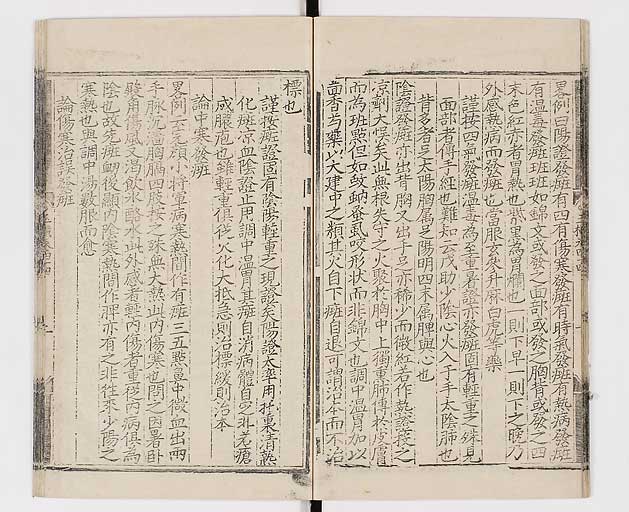 畧例曰陽證發斑有四有傷寒發斑有時氣發斑有熱病發斑
有溫毒發斑斑斑如錦文或發之面部或發之胸背或發之四
末色紅赤者胃熱也紫黑爲胃爛也一則下早一則下之晚乃
外感熱病而發斑也當服玄參升麻白虎等藥
謹按四氣發斑溫毒爲至重暑證亦發斑固有輕重之殊見
面部者傳手經也難知云戊助少陰心火入于手太陰肺也
背多者乃太陽胸屬乎陽明四末屬脾與心也
陰證發斑亦出背胸又出手足亦稀少而微紅若作熱證投之
凉劑大悞矣此無根失守之火聚於胸中上獨熏肺傳於皮膚
而為斑點但如蚊蚋蚤虱咬形狀而非錦文也調中溫胃加以
茴香芍藥以大建中之類其火自下斑自退可謂治本而不治
標也
謹按斑證固有陰陽輕重之現證矣陽證大率用清熱
化斑凉血陰證止用調中溫胃其斑自消病體自乏非充瘡
或膿疱也雖輕重俱從火化大抵急則治標緩則治本
論中寒發斑
畧例云元顏小將軍病寒熱間作有斑三五點鼻中微血出兩
手脉沉濇胸膈四肢按之殊無大熱此內傷寒也問之因暑卧
殿角傷風又渴飲氷酪水此外感者輕內傷者重從內病俱爲
陰也故先斑衂後顯內陰寒熱間作脾亦有之非往來少陽之
寒熱也與調中湯數服而愈
論傷寒治誤發斑